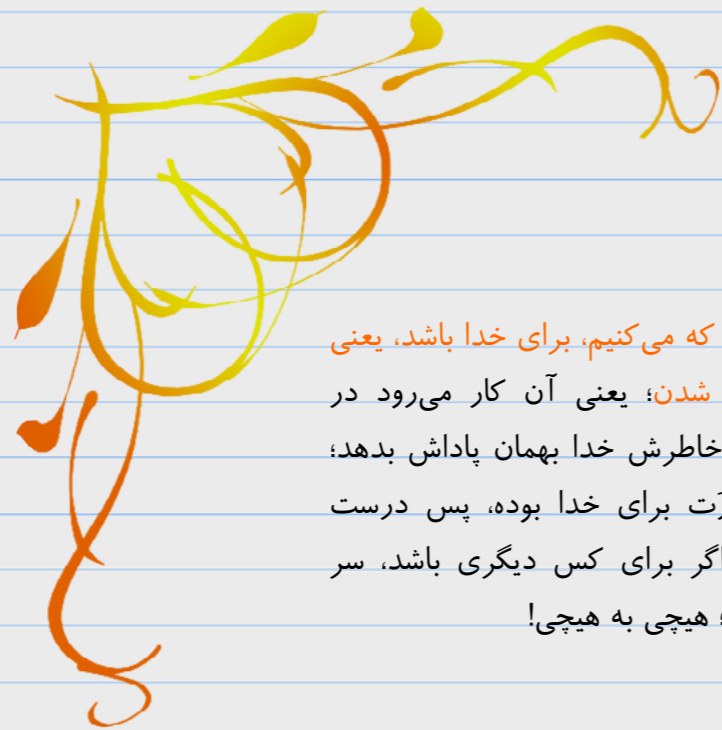 که می‌کنیم، برای خدا باشد، یعنی
شدن؛ یعنی آن کار می‌رود در
خاطرش خدا بهمان پاداش بدهد؛
رَت برای خدا بوده، پس درست
اگر برای کس دیگری باشد، سر
هیچی به هیچی!